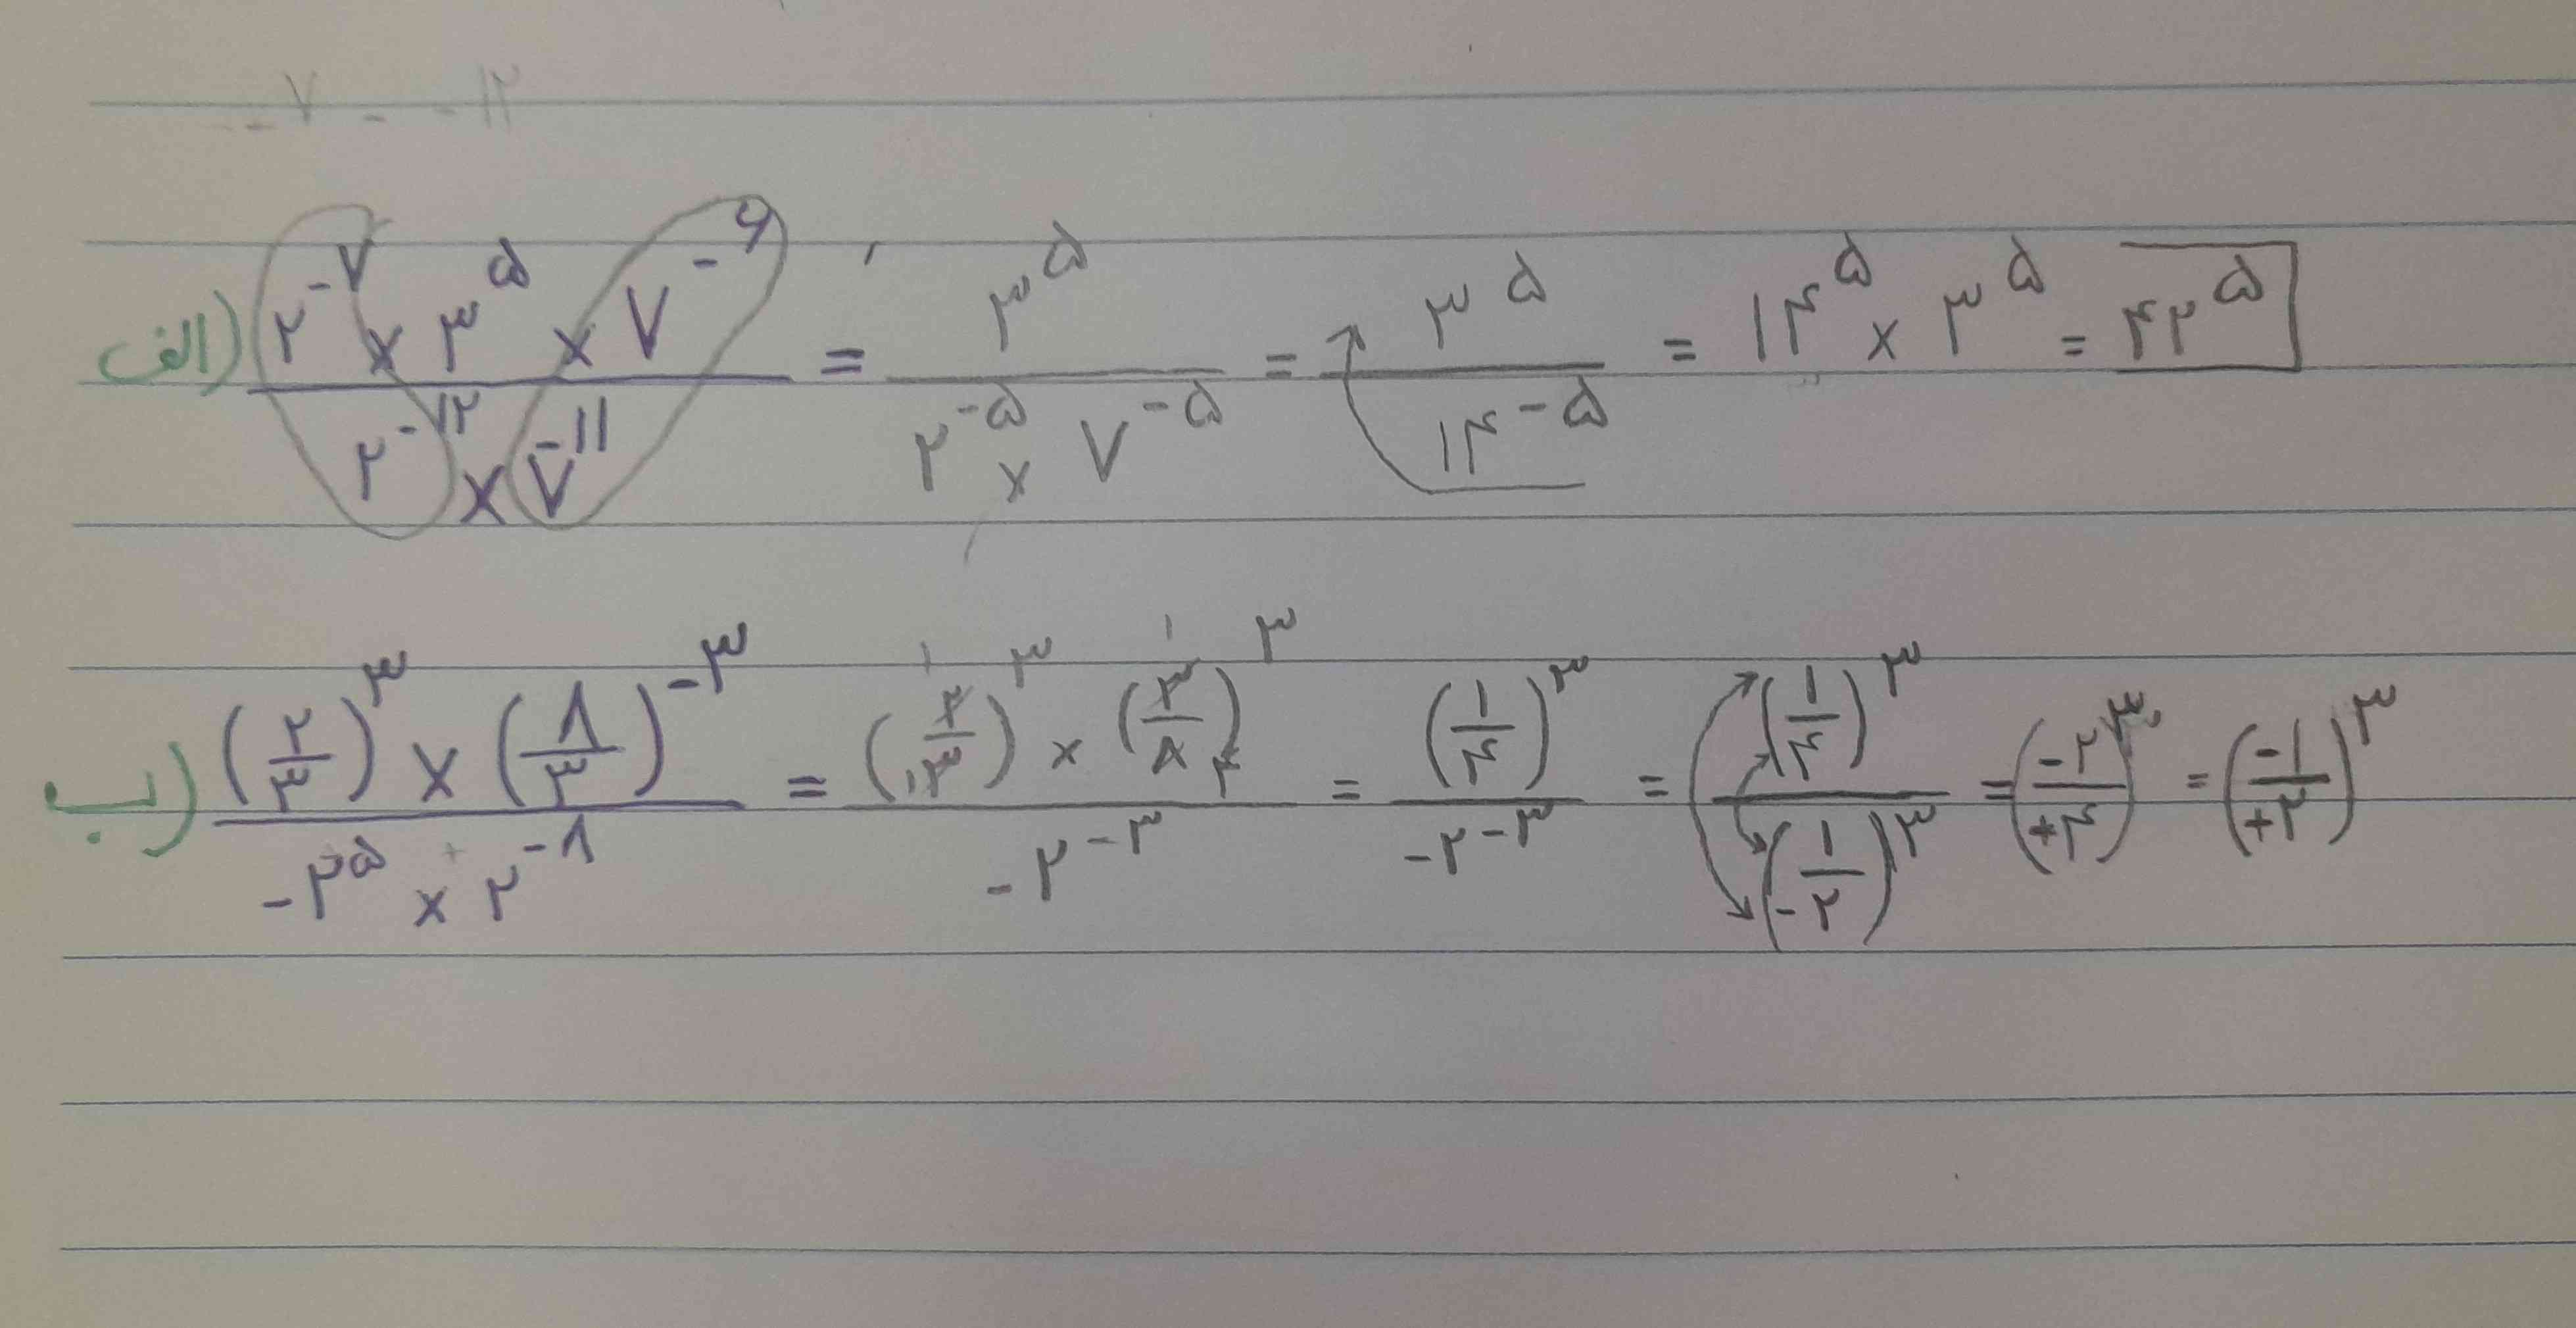 -۷ - -۱۲
الف) (۲^-۷ × ۳^۵ × ۷^-۶)/(۲^-۱۲ × ۷^-۱۱) = ۳^۵/(۲^-۵ × ۷^-۵) = ۳^۵/۱۴^-۵ = ۱۴^۵ × ۳^۵ = ۴۲^۵
ب) ((۲/۳)^۳ × (۸/۳)^-۳)/(-۲^۵ × ۲^-۸) = ((۲/۳)^۳ × (۳/۸)^۳)/(-۲^-۳) = (۱/۴)^۳/(-۲^-۳) = (۱/۴)^۳/(۱/-۲)^۳ = (-۲/+۴)^۳ = (-۱/+۲)^۳